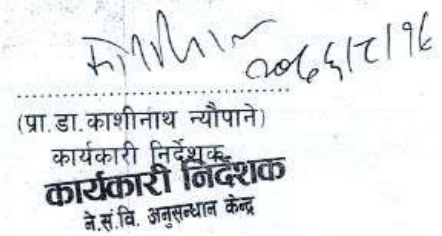 (प्रा.डा.काशीनाथ न्यौपाने)
कार्यकारी निर्देशक
कार्यकारी निर्देशक
ने.सं.वि. अनुसन्धान केन्द्र